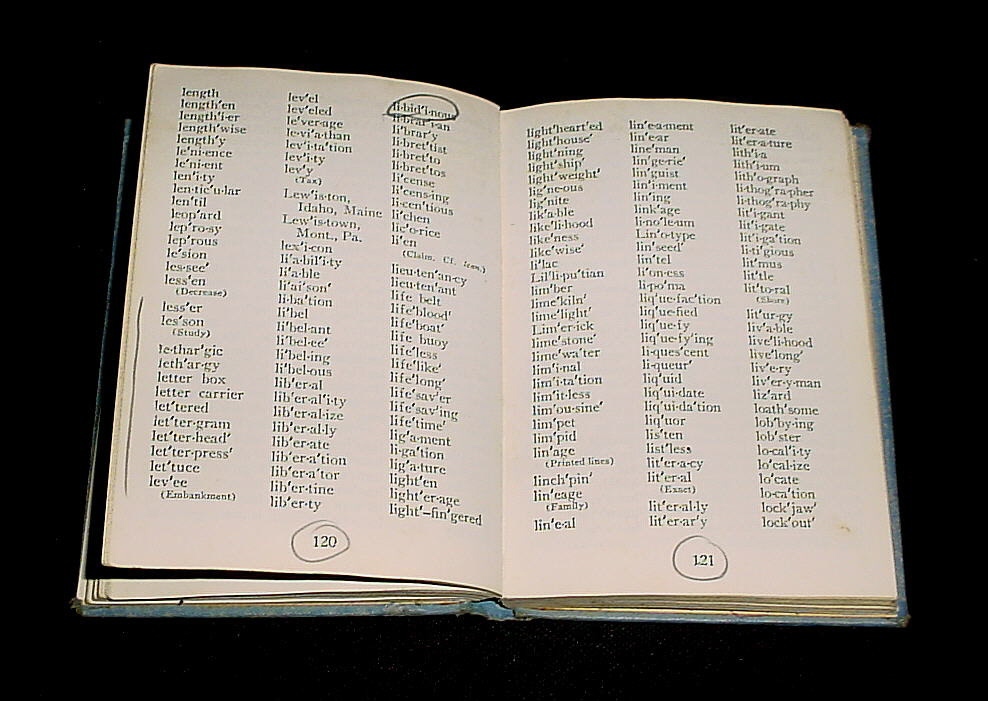 length
length′en
length′i·er
length′wise
length′y
le′ni·ence
le′ni·ent
len′i·ty
len·tic′u·lar
len′til
leop′ard
lep′ro·sy
lep′rous
le′sion
les·see′
less′en
(Decrease)
less′er
les′son
(Study)
le·thar′gic
leth′ar·gy
letter box
letter carrier
let′tered
let′ter·gram
let′ter·head′
let′ter·press′
let′tuce
lev′ee
(Embankment)
lev′el
lev′eled
le′ver·age
le·vi′a·than
lev′i·ta′tion
lev′i·ty
lev′y
(Tax)
Lew′is·ton,
Idaho, Maine
Lew′is·town,
Mont., Pa.
lex′i·con
li′a·bil′i·ty
li′a·ble
li′ai′son′
li·ba′tion
li′bel
li′bel·ant
li′bel·ee′
li′bel·ing
li′bel·ous
lib′er·al
lib′er·al′i·ty
lib′er·al·ize
lib′er·al·ly
lib′er·ate
lib′er·a′tion
lib′er·a′tor
lib′er·tine
lib′er·ty
li·bid′i·nous
li·brar′i·an
li′brar′y
li·bret′tist
li·bret′to
li·bret′tos
li′cense
li′cens·ing
li·cen′tious
li′chen
lic′o·rice
li′en
(Claim. Cf. lean.)
lieu·ten′an·cy
lieu·ten′ant
life belt
life′blood′
life′boat′
life buoy
life′less
life′like′
life′long′
life′sav′er
life′sav′ing
life′time′
lig′a·ment
li·ga′tion
lig′a·ture
light′en
light′er·age
light′–fin′gered
120
light′heart′ed
light′house′
light′ning
light′ship′
light′weight′
lig′ne·ous
lig′nite
lik′a·ble
like′li·hood
like′ness
like′wise′
li′lac
Lil′li·pu′tian
lim′ber
lime′kiln′
lime′light′
Lim′er·ick
lime′stone′
lime′wa′ter
lim′i·nal
lim′i·ta′tion
lim′it·less
lim′ou·sine′
lim′pet
lim′pid
lin′age
(Printed lines)
linch′pin′
lin′eage
(Family)
lin′e·al
lin′e·a·ment
lin′ear
line′man
lin′ge·rie′
lin′guist
lin′i·ment
lin′ing
link′age
li·no′le·um
Lin′o·type
lin′seed′
lin′tel
li′on·ess
li·po′ma
liq′ue·fac′tion
liq′ue·fied
liq′ue·fy
liq′ue·fy′ing
li·ques′cent
li·queur′
liq′uid
liq′ui·date
liq′ui·da′tion
liq′uor
lis′ten
list′less
lit′er·a·cy
lit′er·al
(Exact)
lit′er·al·ly
lit′er·ar′y
lit′er·ate
lit′er·a·ture
lith′i·a
lith′i·um
lith′o·graph
li·thog′ra·pher
li·thog′ra·phy
lit′i·gant
lit′i·gate
lit′i·ga′tion
li·ti′gious
lit′mus
lit′tle
lit′to·ral
(Shore)
lit′ur·gy
liv′a·ble
live′li·hood
live′long′
liv′er·y
liv′er·y·man
liz′ard
loath′some
lob′by·ing
lob′ster
lo·cal′i·ty
lo′cal·ize
lo′cate
lo·ca′tion
lock′jaw′
lock′out′
121